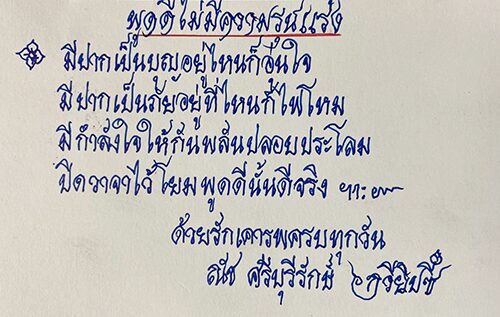 พูดดีไม่มีความรุนแรง
มีปากเป็นบุญอยู่ไหนก็อุ่นใจ
มีปากเป็นภัยอยู่ที่ไหนก็ไฟไหม
มีกำลังใจให้กันพลันปลอบประโลม
ปิดวาจาไว้โยมพูดดีนั้นดีจริง
ด้วยรักเคารพครบทุกวัน
ณัช ศรีบุรีรักษ์